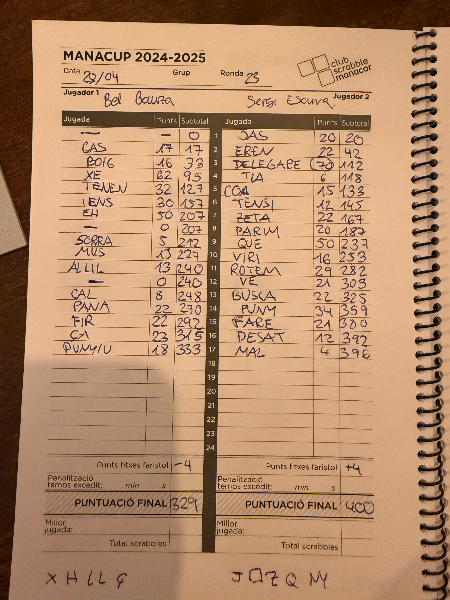 MANACUP 2024-2025
club
scrabble
manacor
Data 22/04 Grup Ronda 23
Jugador 1 Bel Bauza Sergi Escurra Jugador 2
Jugada Punts Subtotal Jugada Punts Subtotal
— — 0 1 JAS 20 20
CAS 17 17 2 EREN 22 42
BOIG 16 33 3 DELEGARE (70) 112
XE 62 95 4 TIA 6 118
TENEN 32 127 5 COA 15 133
IENS 30 157 6 TENSI 12 145
EH 50 207 7 ZETA 22 167
— 0 207 8 PARIM 20 187
SORRA 5 212 9 QUE 50 237
MUS 15 227 10 VIRI 16 253
ALLIL 13 240 11 ROTEM 29 282
— 0 240 12 VE 21 303
CAL 8 248 13 BUSCA 22 325
PANA 22 270 14 PUNY 34 359
FIR 22 292 15 FARE 21 380
CA 23 315 16 DESAT 12 392
PUNYIU 18 333 17 MAL 4 396
18
19
20
21
22
23
24
Punts fitxes faristol -4 Punts fitxes faristol +4
Penalització
temps excedit: min s Penalització
temps excedit: min s
PUNTUACIÓ FINAL 329 PUNTUACIÓ FINAL 400
Millor
jugada: Millor
jugada:
Total scrabbles Total scrabbles
X H LL Ç J □ Z Q NY